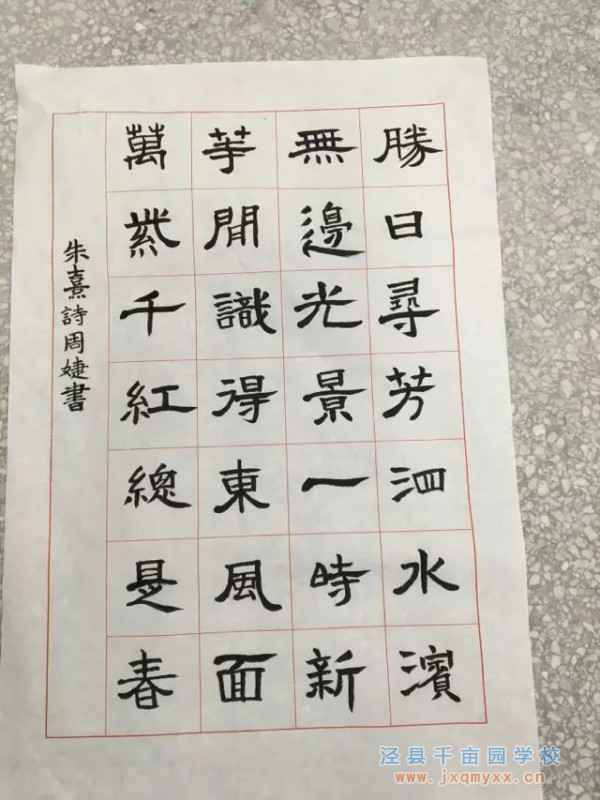 勝日尋芳泗水濱
無邊光景一時新
等閒識得東風面
萬紫千紅總是春
朱熹詩周婕書
泾县千亩园学校
www.jxqmyxx.cn